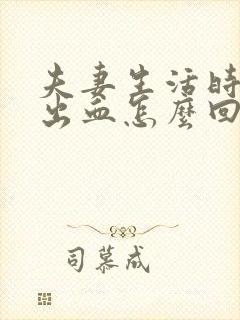 夫妻生活时
出血怎麼回
司慕成